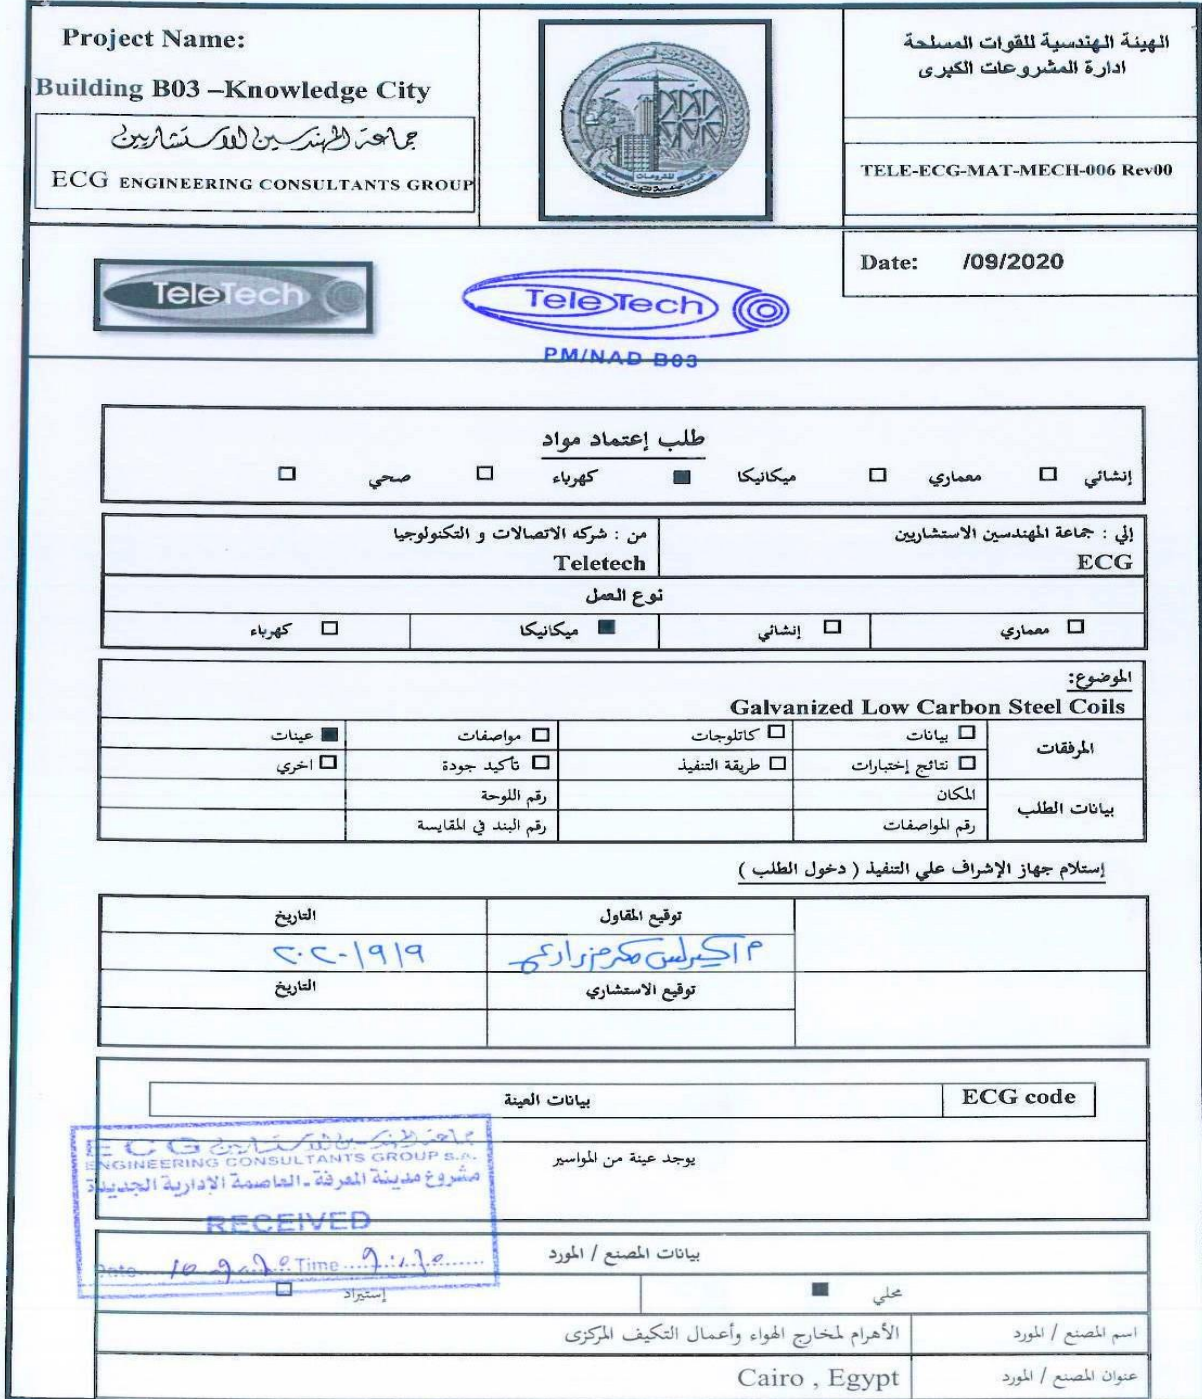 Project Name:
Building B03 –Knowledge City
جماعة المهندسين الاستشاريين
ECG ENGINEERING CONSULTANTS GROUP
الهيئة الهندسية للقوات المسلحة
ادارة المشروعات الكبرى
TELE-ECG-MAT-MECH-006 Rev00
Date: /09/2020
TeleTech
TeleTech
PM/NAD B03
طلب إعتماد مواد
إنشائي □ معماري □ ميكانيكا ■ كهرباء □ صحي □
إلي : جماعة المهندسين الاستشاريين
ECG
من : شركه الاتصالات و التكنولوجيا
Teletech
نوع العمل
□ معماري □ إنشائي ■ ميكانيكا □ كهرباء
الموضوع:
Galvanized Low Carbon Steel Coils
المرفقات
□ بيانات □ كاتلوجات □ مواصفات ■ عينات
□ نتائج إختبارات □ طريقة التنفيذ □ تأكيد جودة □ اخري
بيانات الطلب
المكان رقم اللوحة
رقم المواصفات رقم البند في المقايسة
إستلام جهاز الإشراف علي التنفيذ ( دخول الطلب )
توقيع المقاول التاريخ
٢٠٢٠/٩/٩
توقيع الاستشاري التاريخ
ECG code بيانات العينة
يوجد عينة من المواسير
ECG جماعة المهندسين الاستشاريين
ENGINEERING CONSULTANTS GROUP S.A.
مشروع مدينة المعرفة - العاصمة الإدارية الجديدة
RECEIVED
Date Time
بيانات المصنع / المورد
محلي ■ إستيراد □
اسم المصنع / المورد الأهرام لمخارج الهواء وأعمال التكيف المركزى
عنوان المصنع / المورد Cairo , Egypt